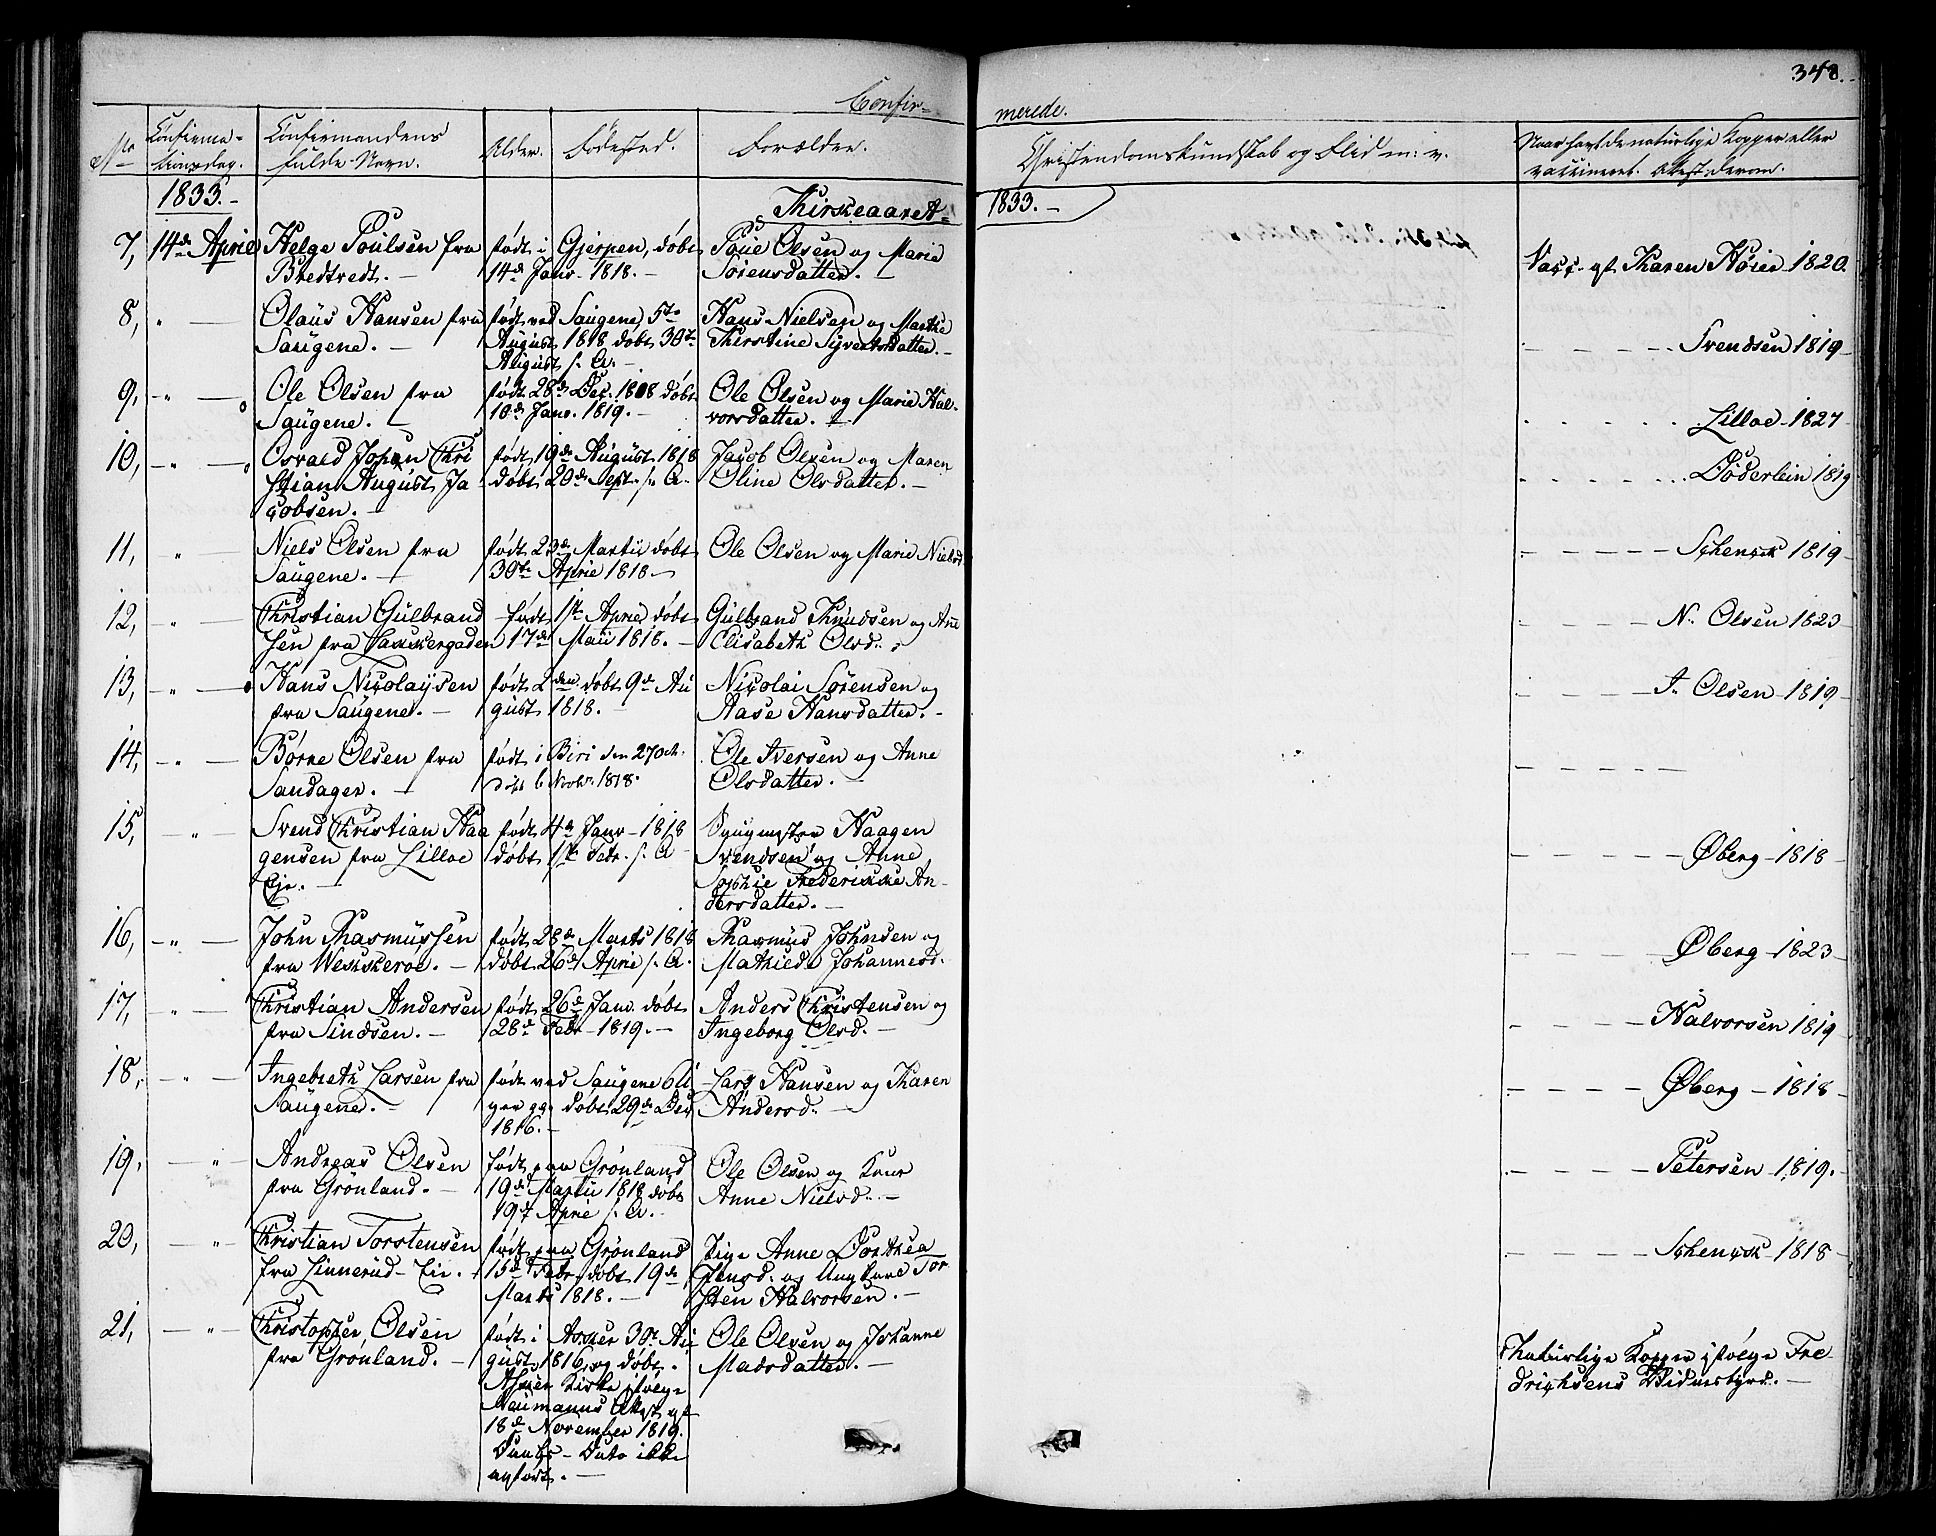 348.
Confir-
merede.
No
Confirma-
tionsdag.
Confirmandens
fulde Navn.
Alder.
Fødested.
Forældre.
Christendomskundskab og Flid m: v.
Naar havt de naturlige Kopper eller
vaccineret. Attest derom.
1833.-
Kirkeaaret
1833.-
7, 14de April Helge Poulsen fra født i Gjerpen, døbt Poul Olsen og Marie
Bredtvedt.- 14de Janv. 1818.- Sørensdatter. Vacc. af Karen Høier 1820.
8, " Olaus Hansen fra født ved Saugene, 5te Hans Nielsen og Marthe
Saugene.- August 1818 døbt 30te Kirstine Sivertsdatter.- Svendsen 1819
August s. A.-
9, " Ole Olsen fra født 28de Dec. 1818 døbt Ole Olsen og Marie Hal-
Saugene. 10de Janv. 1819.- vorsdatter. Lilloe 1827
10, " Osvald Johan Chri født 19de August 1818 Jacob Olsen og Maren
stian August Ja- døbt 20de Sept. s. A. Oline Olsdatter.- Døderlein 1819
cobsen.-
11, " Niels Olsen fra født 23de Martii døbt Ole Olsen og Marie Nielsd
Saugene.- 30te April 1818- Schenck 1819
12, " Christian Gulbrand født 1ste April døbt Gulbrand Knudsen og Ane
sen fra Lakkergaden 17de Maii 1818.- Elisabeth Olsd. N. Olsen 1823
13, " Hans Nicolaysen født 2den døbt 9de Au Nicolai Sørensen og
fra Saugene.- gust 1818.- Aase Hansdatter.- Olsen 1819
14, " Børre Olsen fra født i Biri den 27 Oct. Ole Iversen og Anne
Sandager.- døbt 6 Novbr. 1818. Olsdatter.-
15, " Svend Christian Haa født 4de Janv. 1818 Haagen
gensen fra Lilloe døbt 1ste Febr. s. A Svendsen og Anne
Eje.- Sophie Frederikke An-
dersdatter.- Øberg 1818
16, " John Rasmussen født 28de Marts 1818 Rasmus Johnsen og
fra døbt 26de April s. A. Mathilde Johannesd. Øberg 1823
17, " Christian Andersen født 26de Janv. døbt Anders Christensen og
fra Sindsen.- 28de Febr. 1819.- Ingeborg Olsd.- Halvorsen 1819
18, " Ingebreth Larsen fra født ved Saugene Lars Hansen og Karen
Saugene.- døbt 29de Dec Andersd.- Øberg 1818
1816.-
19, " Andreas Olsen født paa Grønland Ole Olsen og
fra Grønland.- 19de Martii 1818 døbt Anne Nielsd.- Petersen 1819.
19de April s. A.-
20, " Christian Torstensen født paa Grønland Pige Anne Dorthea
fra Linnerud-Eie.- 15de Febr. døbt 19de Jensd. og Ungkarl Tor
Marts 1818.- sten Halvorsen.- Schenck 1818
21, " Christopher Olsen født i Asker 30te Au Ole Olsen og Johanne
fra Grønland.- gust 1816, og døbt i Madsdatter.-
Asker Kirke ifølge
Neumanns Attest af
18de November 1819.
Daabs-Dato ikke
anført.-
Naturlige Kopper ifølge Fre-
drichsens Vidnesbyrd.-